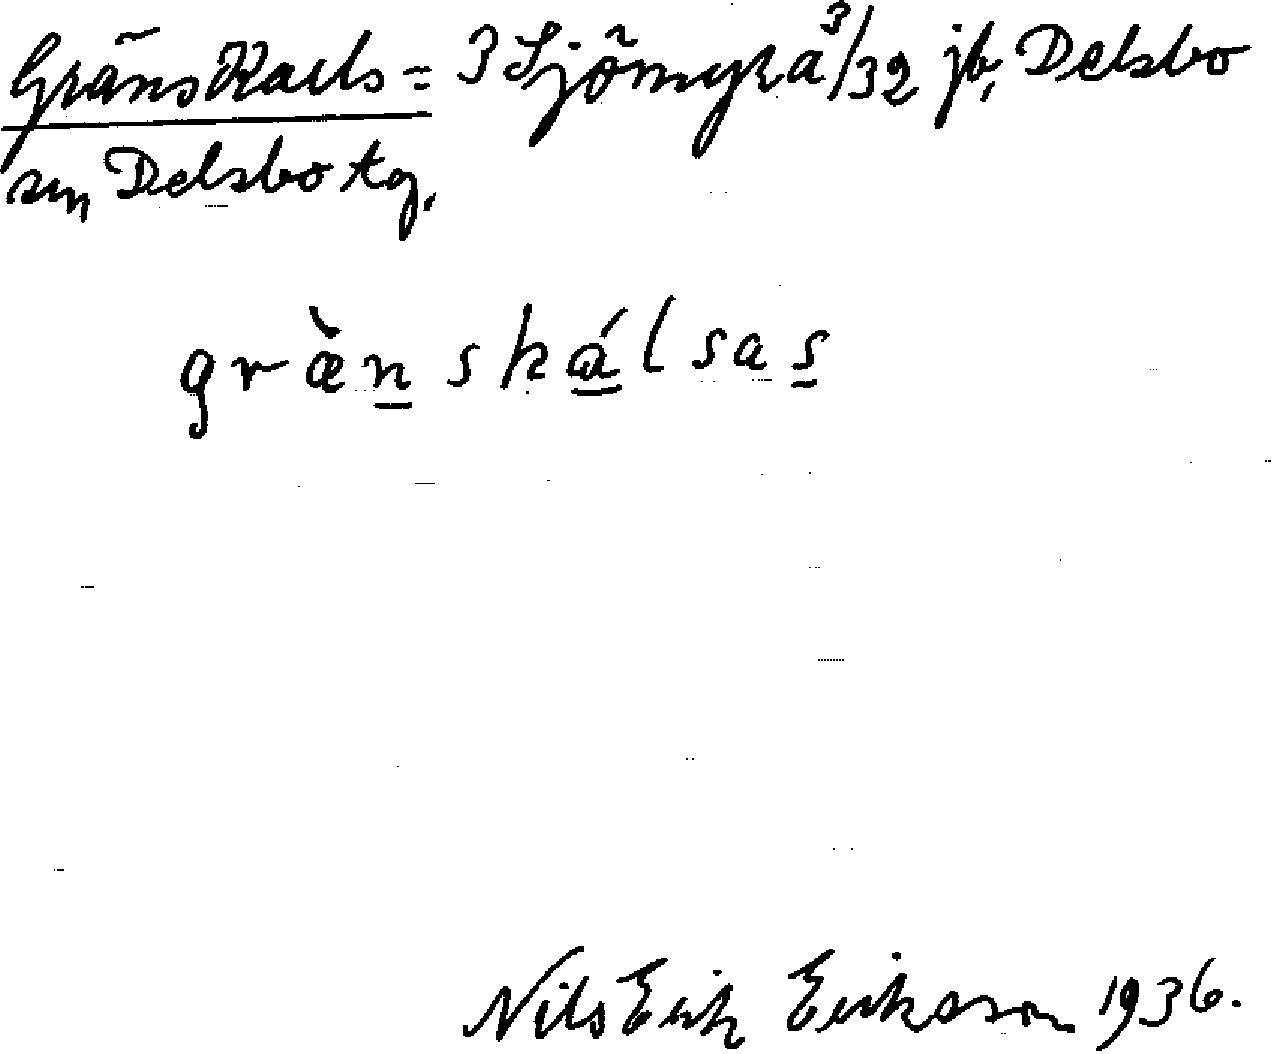 Gräns Karls = 3 Sjömyra 3/32 jb, Delsbo
sn, Delsbo tg.
græ̀n̲ská̲lsas̲
Nils Erik Eriksson 1936.